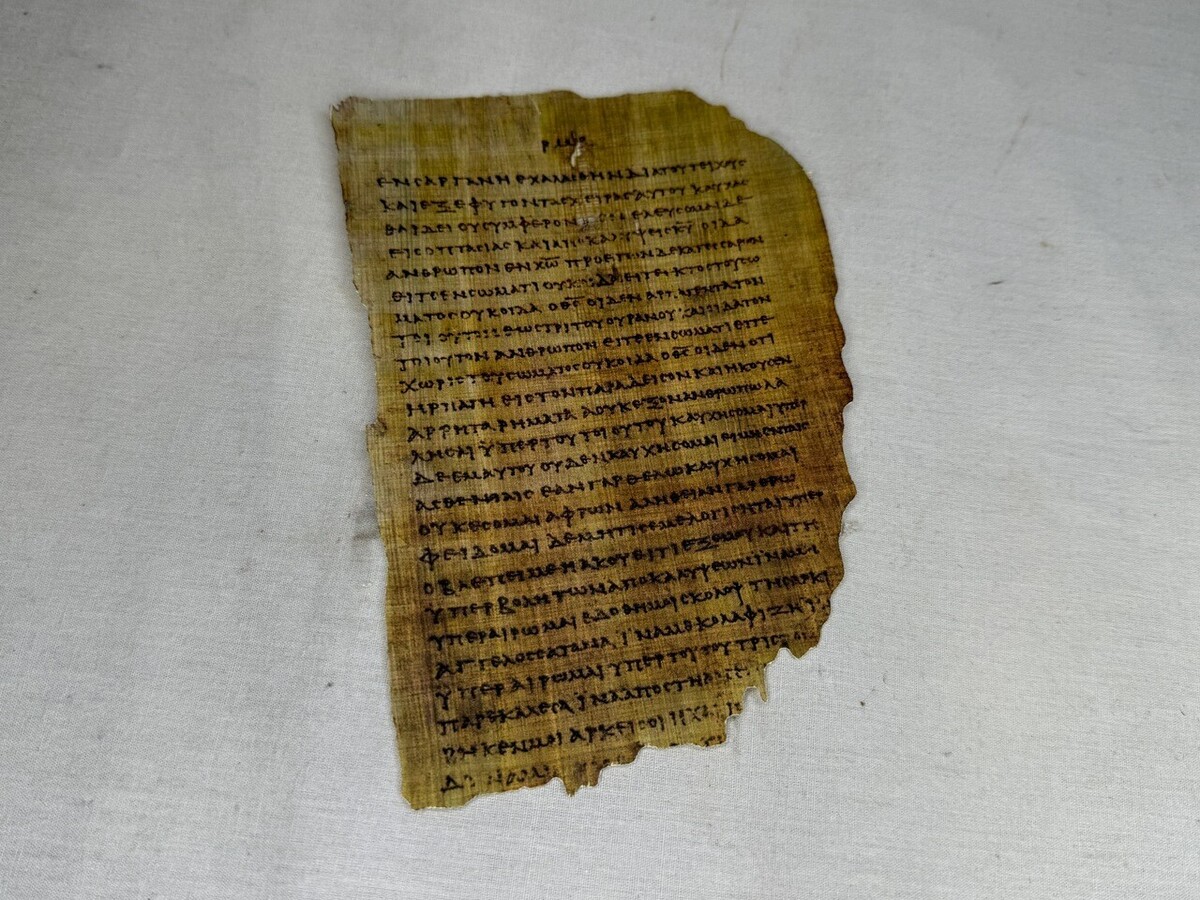 ΕΝ ϹΑΡΓΑΝΗ ΕΧΑΛΑϹΘΗΝ ΔΙΑ ΤΟΥ ΤΕΙΧΟΥϹ
ΚΑΙ ΕΞΕΦΥΓΟΝ ΤΑϹ ΧΕΙΡΑϹ ΑΥΤΟΥ ΚΑΥΧΑϹ
ΘΑΙ ΔΕΙ ΟΥ ϹΥΜΦΕΡΟΝ ΕΛΕΥϹΟΜΑΙ ΔΕ
ΕΙϹ ΟΠΤΑϹΙΑϹ ΚΑΙ ΑΠΟΚΑΛΥΨΕΙϹ Κ̅Υ̅ ΟΙΔΑ
ΑΝΘΡΩΠΟΝ ΕΝ Χ̅Ω̅ ΠΡΟ ΕΤΩΝ ΔΕΚΑΤΕϹϹΑΡΩΝ
ΕΙΤΕ ΕΝ ϹΩΜΑΤΙ ΟΥΚ ΟΙΔΑ ΕΙΤΕ ΕΚΤΟϹ ΤΟΥ ϹΩ
ΜΑΤΟϹ ΟΥΚ ΟΙΔΑ Ο Θ̅Ϲ̅ ΟΙΔΕΝ ΑΡΠΑΓΕΝΤΑ ΤΟΝ
ΤΟΙΟΥΤΟΝ ΕΩϹ ΤΡΙΤΟΥ ΟΥΡΑΝΟΥ ΚΑΙ ΟΙΔΑ ΤΟΝ
ΤΟΙΟΥΤΟΝ ΑΝΘΡΩΠΟΝ ΕΙΤΕ ΕΝ ϹΩΜΑΤΙ ΕΙΤΕ
ΧΩΡΙϹ ΤΟΥ ϹΩΜΑΤΟϹ ΟΥΚ ΟΙΔΑ Ο Θ̅Ϲ̅ ΟΙΔΕΝ ΟΤΙ
ΗΡΠΑΓΗ ΕΙϹ ΤΟΝ ΠΑΡΑΔΕΙϹΟΝ ΚΑΙ ΗΚΟΥϹΕΝ
ΑΡΡΗΤΑ ΡΗΜΑΤΑ Α ΟΥΚ ΕΞΟΝ ΑΝΘΡΩΠΩ ΛΑ
ΛΗϹΑΙ ΫΠΕΡ ΤΟΥ ΤΟΙΟΥΤΟΥ ΚΑΥΧΗϹΟΜΑΙ ΥΠΕΡ
ΔΕ ΕΜΑΥΤΟΥ ΟΥΔΕΝ ΚΑΥΧΗϹΟΜΑΙ ΕΙ ΜΗ ΕΝ ΤΑΙϹ
ΑϹΘΕΝΕΙΑΙϹ ΕΑΝ ΓΑΡ ΘΕΛΩ ΚΑΥΧΗϹΟΜΑΙ
ΟΥΚ ΕϹΟΜΑΙ ΑΦΡΩΝ ΑΛΗΘΕΙΑΝ ΓΑΡ ΕΡΩ
ΦΕΙΔΟΜΑΙ ΔΕ ΜΗ ΤΙϹ ΕΜΕ ΛΟΓΙϹΗΤΑΙ ΥΠΕΡ
Ο ΒΛΕΠΕΙ ΜΕ Η ΑΚΟΥΕΙ ΤΙ ΕΞ ΕΜΟΥ ΚΑΙ ΤΗ
ΥΠΕΡΒΟΛΗ ΤΩΝ ΑΠΟΚΑΛΥΨΕΩΝ ΙΝΑ ΜΗ
ΥΠΕΡΑΙΡΩΜΑΙ ΕΔΟΘΗ ΜΟΙ ϹΚΟΛΟΨ ΤΗ ϹΑΡΚΙ
ΑΓΓΕΛΟϹ ϹΑΤΑΝΑ ΙΝΑ ΜΕ ΚΟΛΑΦΙΖΗ
ΥΠΕΡΑΙΡΩΜΑΙ ΥΠΕΡ ΤΟΥΤΟΥ ΤΡΙϹ
ΠΑΡΕΚΑΛΕϹΑ ΙΝΑ ΑΠΟϹΤΗ
ΡΗΚΕΝ ΜΟΙ ΑΡΚΕΙ ϹΟΙ Η ΧΑ